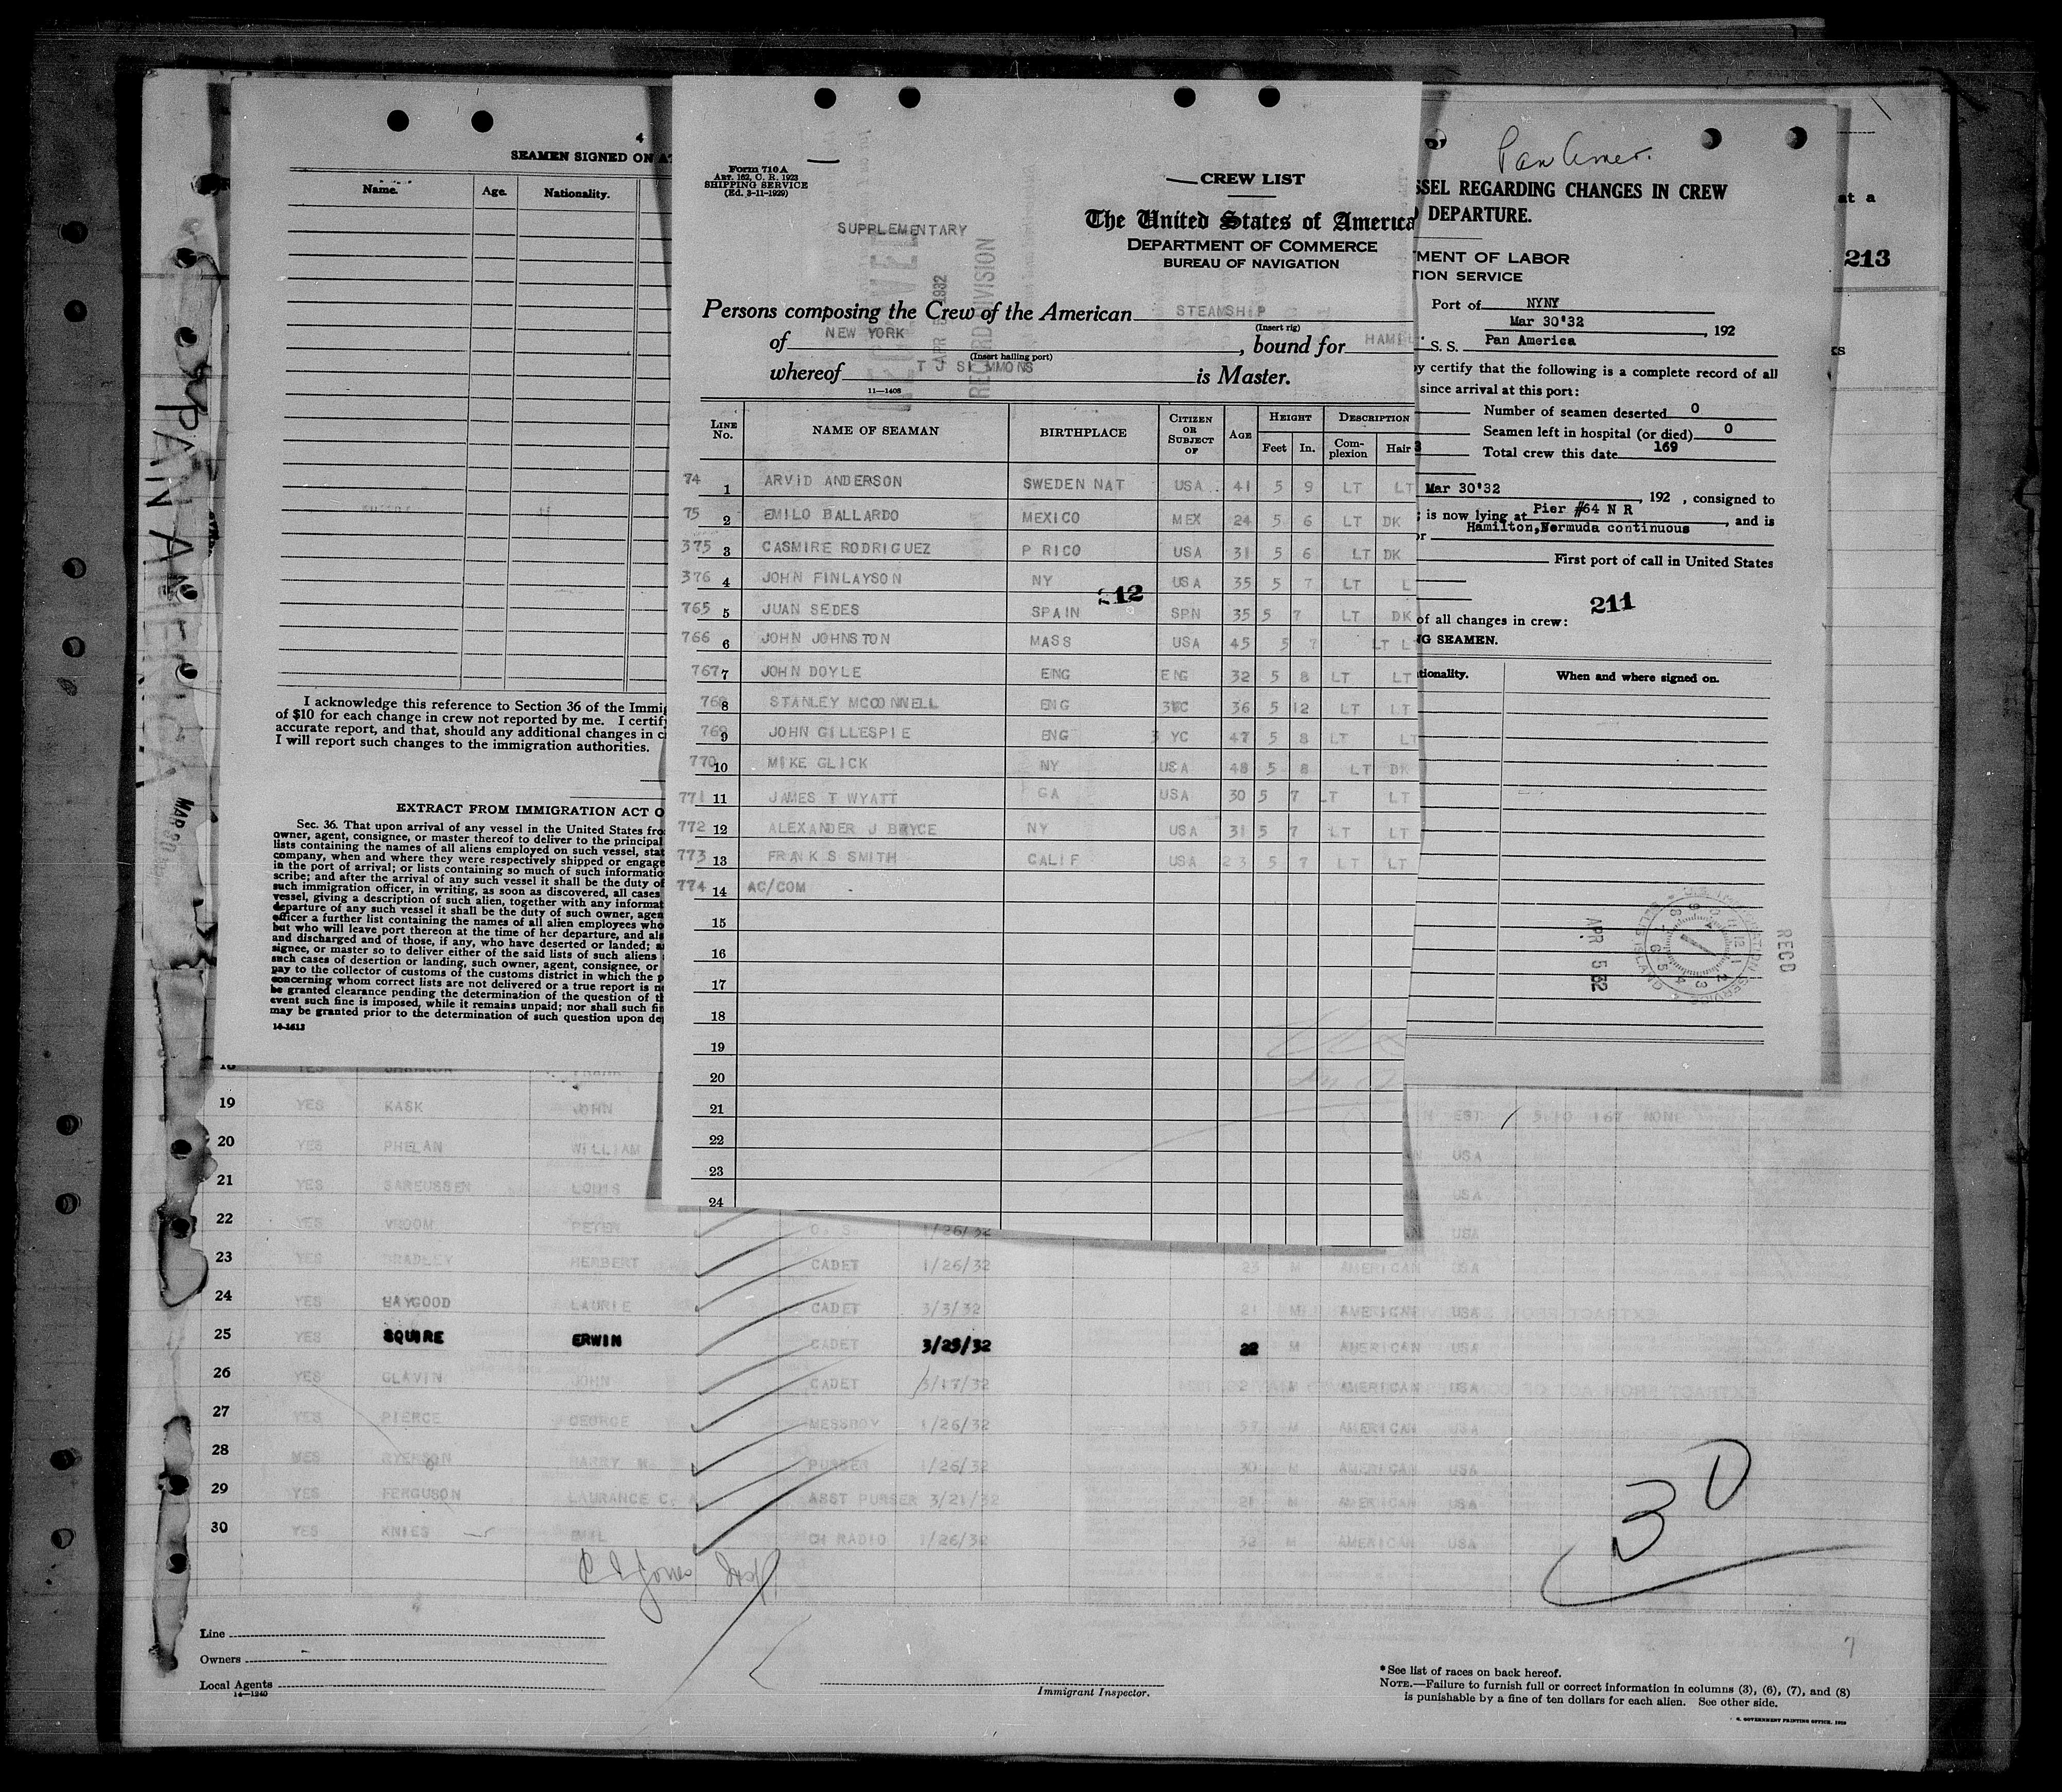 4
SEAMEN SIGNED ON AT
Name. Age. Nationality.
I acknowledge this reference to Section 36 of the Immig
of $10 for each change in crew not reported by me. I certify
accurate report, and that, should any additional changes in c
I will report such changes to the immigration authorities.
EXTRACT FROM IMMIGRATION ACT O
Sec. 36. That upon arrival of any vessel in the United States fro
owner, agent, consignee, or master thereof to deliver to the principal
lists containing the names of all aliens employed on such vessel, stat
company, when and where they were respectively shipped or engage
in the port of arrival; or lists containing so much of such informatio
scribe; and after the arrival of any such vessel it shall be the duty of
such immigration officer, in writing, as soon as discovered, all cases
vessel, giving a description of such alien, together with any informat
departure of any such vessel it shall be the duty of such owner, agen
officer a further list containing the names of all alien employees who
but who will leave port thereon at the time of her departure, and als
and discharged and of those, if any, who have deserted or landed; a
signee, or master so to deliver either of the said lists of such aliens
such cases of desertion or landing, such owner, agent, consignee, or
pay to the collector of customs of the customs district in which the p
concerning whom correct lists are not delivered or a true report is n
be granted clearance pending the determination of the question of th
event such fine is imposed, while it remains unpaid; nor shall such fin
may be granted prior to the determination of such question upon de
14-1413
PAN AMERICA
MAR 30
Form 710 A
Art. 162, C. R. 1923
SHIPPING SERVICE
(Ed. 3-11-1929)
CREW LIST
SUPPLEMENTARY
The United States of America
DEPARTMENT OF COMMERCE
BUREAU OF NAVIGATION
APR 5 1932
RECORD DIVISION
Persons composing the Crew of the American STEAMSHIP
(Insert rig)
of NEW YORK , bound for HAMIL
(Insert hailing port)
whereof T J SIMMONS is Master.
11—1408
LINE No. NAME OF SEAMAN BIRTHPLACE CITIZEN OR SUBJECT OF AGE HEIGHT DESCRIPTION
Feet In. Complexion Hair
74 1 ARVID ANDERSON SWEDEN NAT USA 41 5 9 LT LT
75 2 EMILO BALLARDO MEXICO MEX 24 5 6 LT DK
375 3 CASMIRE RODRIGUEZ P RICO USA 31 5 6 LT DK
376 4 JOHN FINLAYSON NY USA 35 5 7 LT L
212
765 5 JUAN SEDES SPAIN SPN 35 5 7 LT DK
766 6 JOHN JOHNSTON MASS USA 45 5 7 LT L
767 7 JOHN DOYLE ENG ENG 32 5 8 LT LT
768 8 STANLEY MCCONNELL ENG 3YC 36 5 12 LT LT
769 9 JOHN GILLESPIE ENG 3 YC 47 5 8 LT LT
770 10 MIKE GLICK NY USA 48 5 8 LT DK
771 11 JAMES T WYATT GA USA 30 5 7 LT LT
772 12 ALEXANDER J BRYCE NY USA 31 5 7 LT LT
773 13 FRANK S SMITH CALIF USA 23 5 7 LT LT
774 14 AC/COM
15
16
17
18
19
20
21
22
23
24
Pan Amer.
SSEL REGARDING CHANGES IN CREW
DEPARTURE.
MENT OF LABOR
TION SERVICE
Port of NYNY
Mar 30'32 , 192
S. S. Pan America
y certify that the following is a complete record of all
since arrival at this port:
Number of seamen deserted 0
Seamen left in hospital (or died) 0
Total crew this date 169
Mar 30'32 , 192 , consigned to
is now lying at Pier #64 N R , and is
or Hamilton,Bermuda continuous
First port of call in United States
211
of all changes in crew:
G SEAMEN.
tionality. When and where signed on.
APR 5 32
RECD
at a
213
19 YES KASK JOHN EST 5 10 167 NONE
20 YES PHELAN WILLIAM USA
21 YES SAREUSSEN LOUIS USA
22 YES VROOM PETER O. S. 1/26/32 USA
23 YES BRADLEY HERBERT CADET 1/26/32 23 M AMERICAN USA
24 YES HAYGOOD LAURIE CADET 3/3/32 21 M AMERICAN USA
25 YES SQUIRE ERWIN CADET 3/23/32 22 M AMERICAN USA
26 YES GLAVIN JOHN CADET 3/17/32 M AMERICAN USA
27 YES PIERCE GEORGE MESSBOY 1/26/32 57 M AMERICAN USA
28 YES RYERSON HARRY W PURSER 1/26/32 30 M AMERICAN USA
29 YES FERGUSON LAURANCE C. ASST PURSER 3/21/32 21 M AMERICAN USA
30 YES KNIES EMIL CH RADIO 1/26/32 32 M AMERICAN USA
Jones
30
Line
Owners
Local Agents
14—1240
Immigrant Inspector.
*See list of races on back hereof.
NOTE.—Failure to furnish full or correct information in columns (3), (6), (7), and (8)
is punishable by a fine of ten dollars for each alien. See other side.